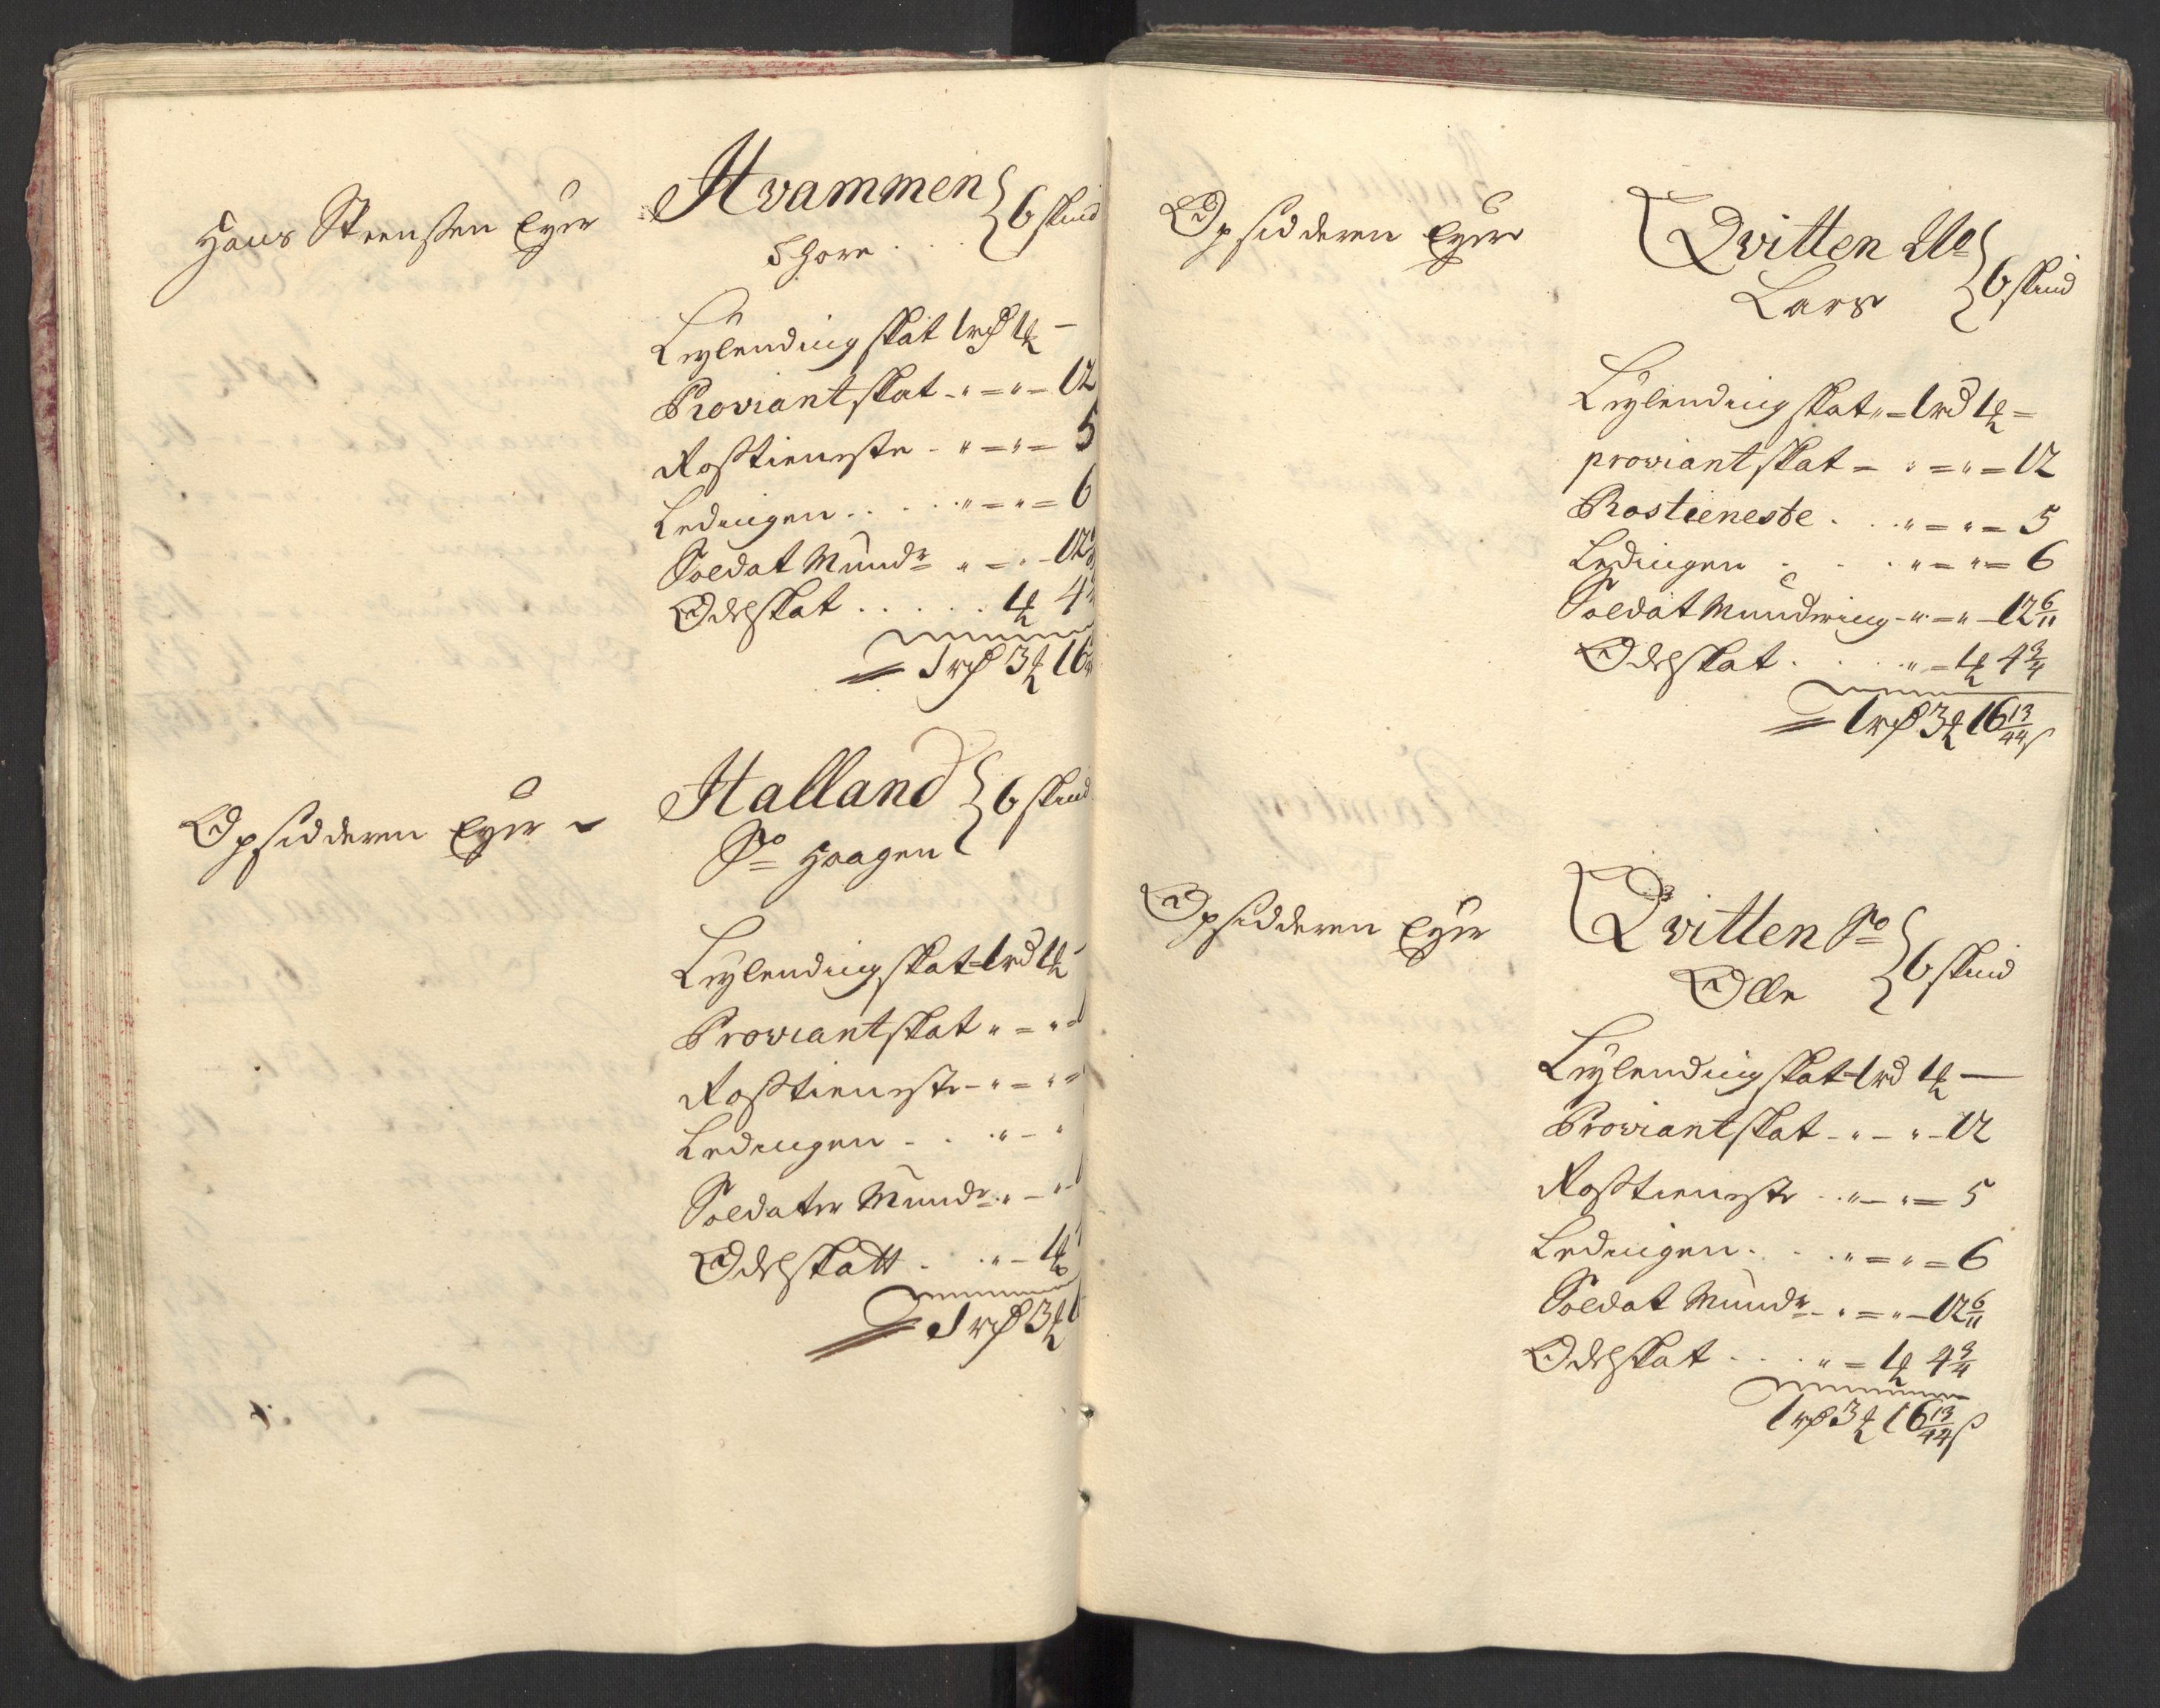 Hans Steensen Eyer
Hvammen } 6 skind
Thore
Leylending skat 1 rd 1 ℔ –
Proviant skat - " = " - 12
Rosstieneste - " = " = 5
Ledingen . . . " = " = 6
Soldat Mund: " = " - 12
Odelskat . . . . . 1 ℔ 4
1 rd 3 ℔ 16
Opsidderen Eyer
Halland } 6 skind
So Haagen
Leylending skat = 1 rd 1 ℔
Proviantskat " = " =
Rosstieneste - " = " =
Ledingen - . . " - "
Soldater Mund: " - "
Odelskatt . . " - 1 ℔
1 rd 3 ℔
Opsidderen Eyer
Qvitten No } 6 skind
Lars
Leylending skat " = 1 rd 1 ℔ =
proviant skat = " = " = 12
Rostieneste . . . " = " = 5
Ledingen . . . " = " = 6
Soldat Mundering - " = " - 12 6/11
Odelskat . . . " = 1 ℔ 4 3/4
1 rd 3 ℔ 16 13/44 s
Opsidderen Eyer
Qvitten So } 6 skind
Olle
Leylending skat = 1 rd 1 ℔ —
Proviant skat - " - " - 12
Rosstieneste . . " - " = 5
Ledingen . . . " = " = 6
Soldat Mund: - " = " - 12 6/11
Odelskat - . . . " = 1 ℔ 4 3/4
1 rd 3 ℔ 16 13/44 s